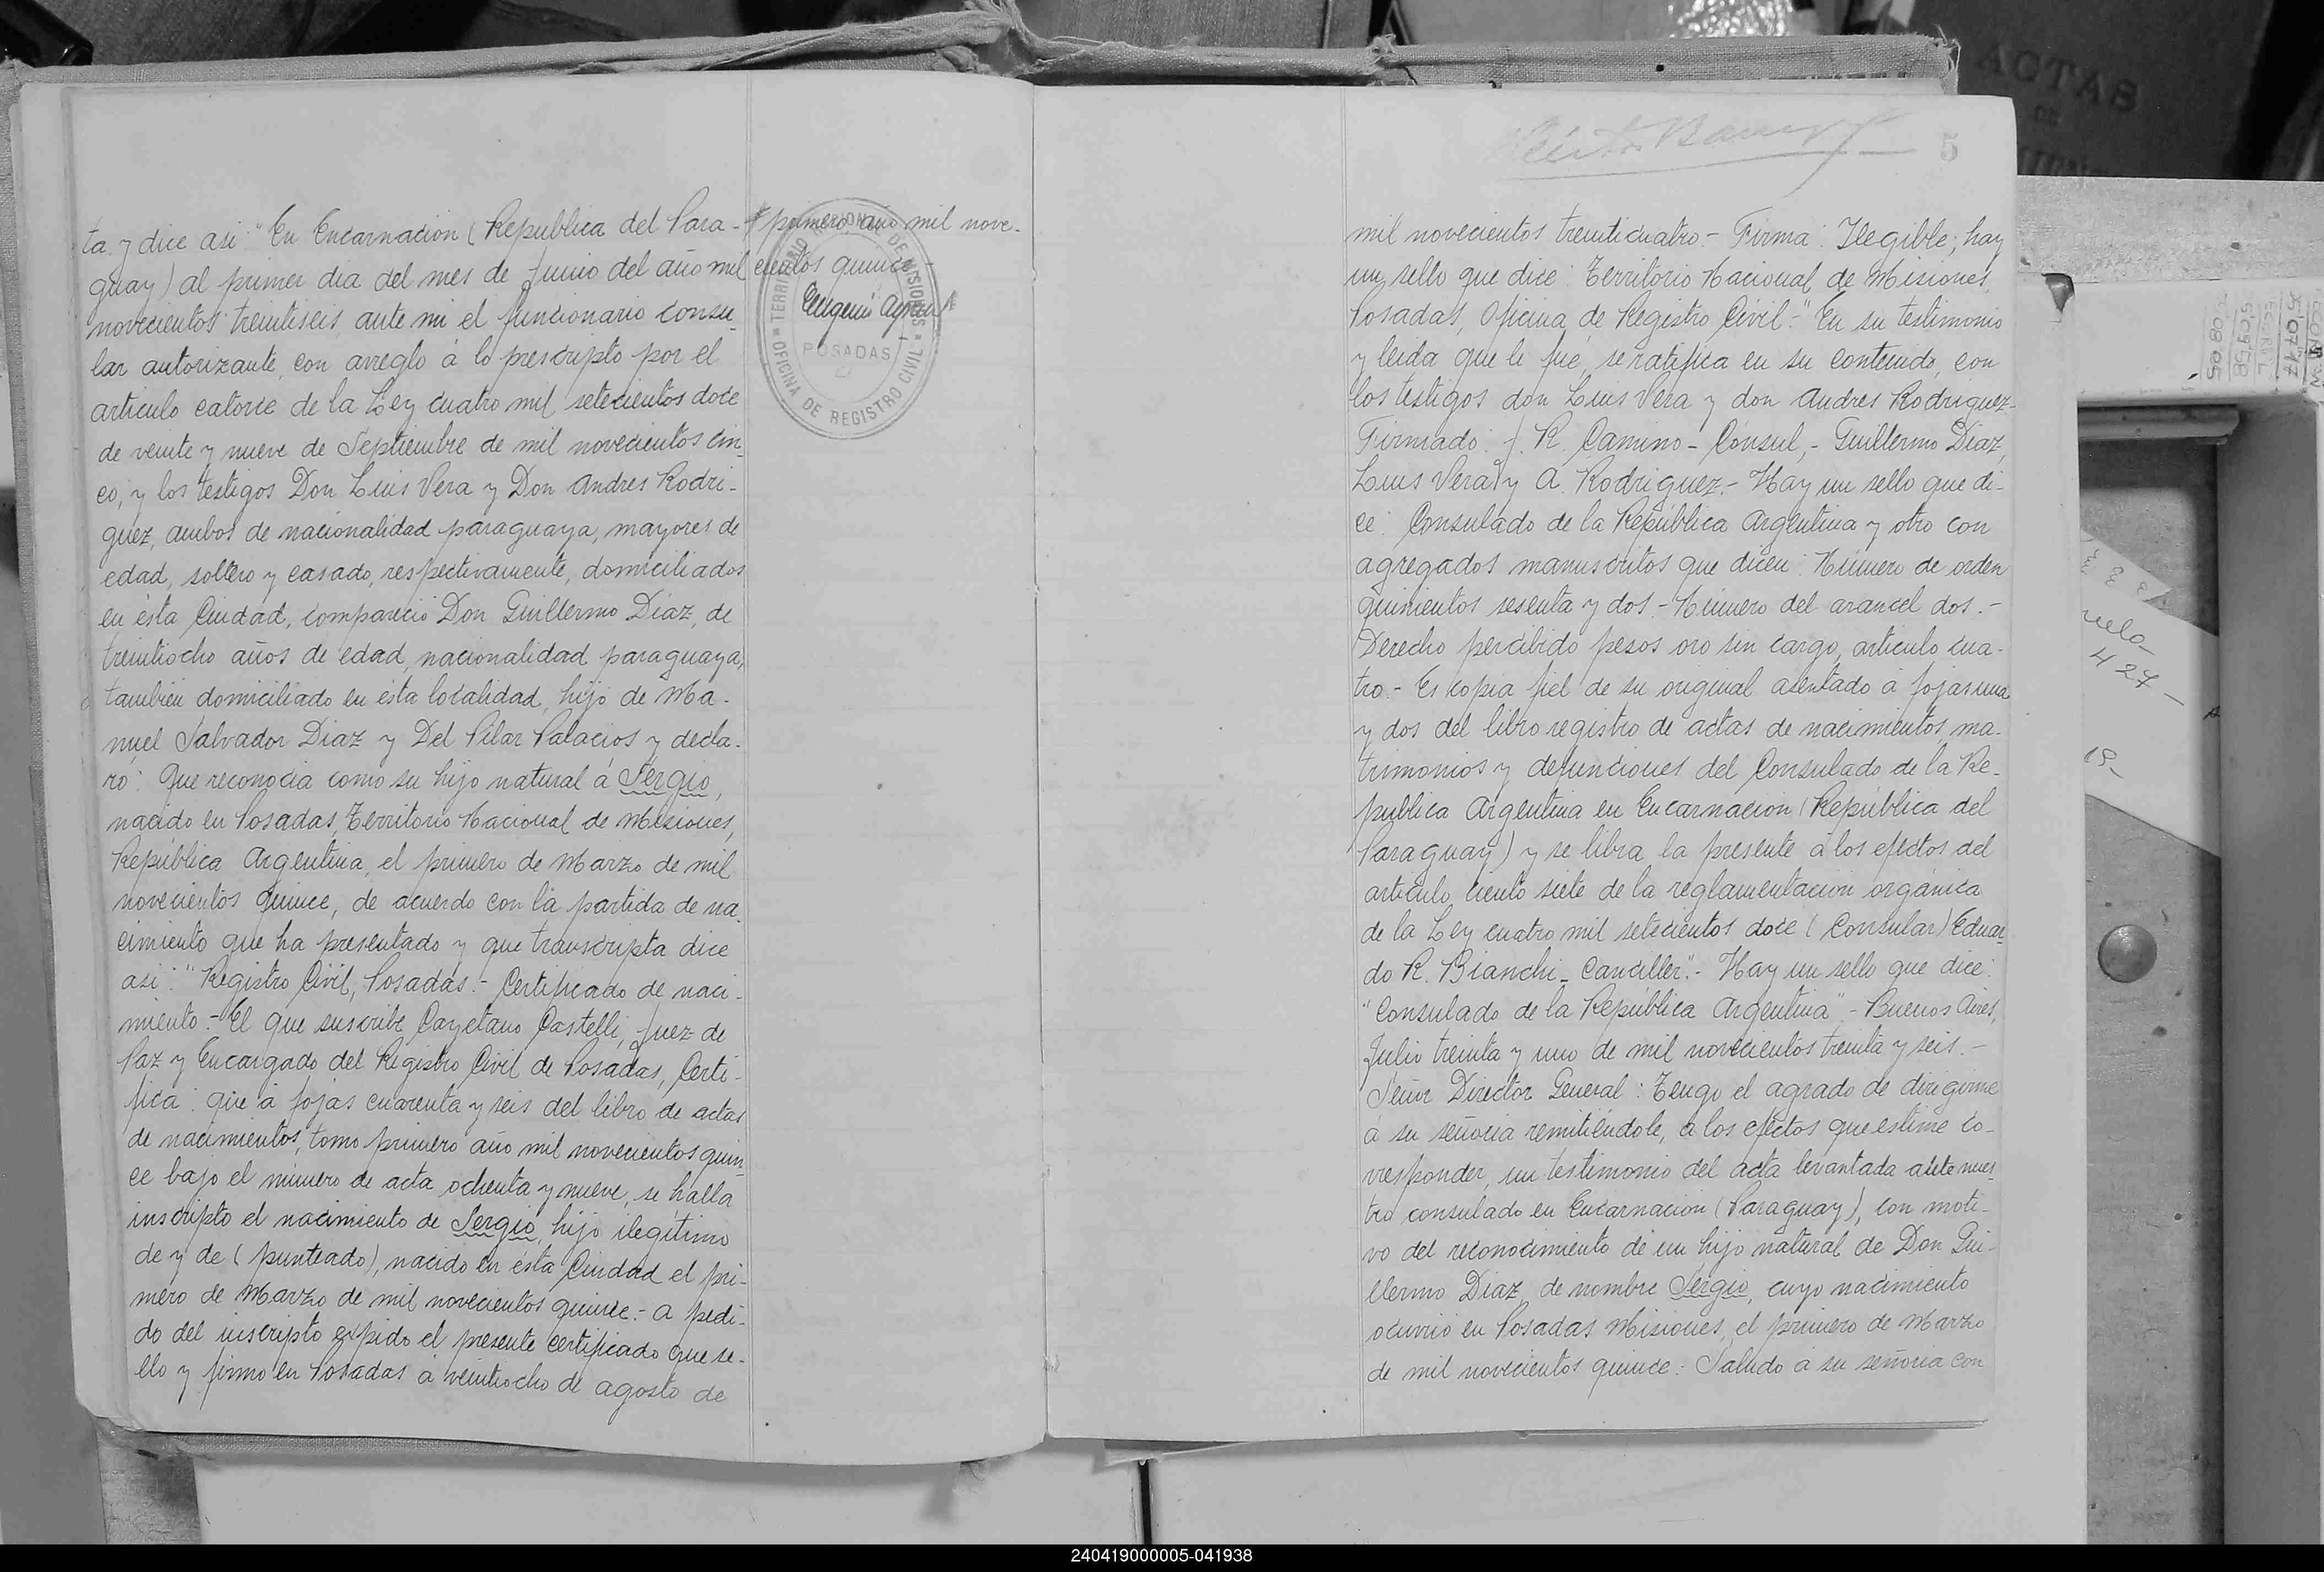 ta y dice asi: "En Encarnación (República del Para-
guay) al primer dia del mes de Junio del año mil
novecientos treintiseis, ante mi el funcionario consu-
lar autorizante, con arreglo á lo prescripto por el
articulo catorce de la Ley cuatro mil setecientos doce
de veinte y nueve de Septiembre de mil novecientos cin-
co, y los testigos Don Luis Vera y Don Andres Rodri-
guez, ambos de nacionalidad paraguaya, mayores de
edad, soltero y casado, respectivamente, domiciliados
en ésta Ciudad, compareció Don Guillermo Diaz, de
treintiocho años de edad, nacionalidad paraguaya,
tambien domiciliado en ésta localidad, hijo de Ma-
nuel Salvador Diaz y Del Pilar Palacios y decla-
ró: Que reconocia como su hijo natural á Sergio,
nacido en Posadas, Territorio Nacional de Misiones,
República Argentina, el primero de Marzo de mil
novecientos quince, de acuerdo con la partida de na-
cimiento que ha presentado y que transcripta dice
asi: "Registro Civil, Posadas.- Certificado de naci-
miento.- El que suscribe Cayetano Castelli, Juez de
Paz y Encargado del Registro Civil de Posadas, Certi-
fica: que á fojas cuarenta y seis del libro de actas
de nacimientos, tomo primero año mil novecientos quin-
ce bajo el número de acta ochenta y nueve, se halla
inscripto el nacimiento de Sergio, hijo ilegítimo
de y de (punteado), nacido en ésta Ciudad el pri-
mero de Marzo de mil novecientos quince.- A pedi-
do del inscripto expido el presente certificado que se-
llo y firmo en Posadas á veintiocho de agosto de
primero, año mil nove-
cientos quince
TERRITORIO NACIONAL DE MISIONES
POSADAS
OFICINA DE REGISTRO CIVIL
5
mil novecientos treinticuatro.- Firma: Ilegible; hay
un sello que dice: Territorio Nacional de Misiones,
Posadas, Oficina de Registro Civil." En su testimonio
y leida que le fué, se ratifica en su contenido, con
los testigos don Luis Vera y don Andres Rodriguez-
Firmado: J. R. Camino - Cónsul,- Guillermo Diaz,
Luis Vera y A. Rodriguez.- Hay un sello que di-
ce: Consulado de la República Argentina y otro con
agregados manuscritos que dicen: Número de orden
quinientos sesenta y dos.- Número del arancel dos.-
Derecho percibido pesos oro sin cargo, articulo cua-
tro.- Es copia fiel de su original asentado á fojas una
y dos del libro registro de actas de nacimientos, ma-
trimonios y defunciones del Consulado de la Re-
pública Argentina en Encarnación (República del
Paraguay) y se libra la presente á los efectos del
articulo ciento siete de la reglamentación orgánica
de la Ley cuatro mil setecientos doce (Consular) Eduar-
do R. Bianchi - Canciller".- Hay un sello que dice:
"Consulado de la República Argentina".- Buenos Aires,
Julio treinta y uno de mil novecientos treinta y seis.-
Señor Director General: Tengo el agrado de dirigirme
a su señoria remitiéndole, á los efectos que estime co-
rresponder, un testimonio del acta levantada ante nues-
tro consulado en Encarnación (Paraguay), con moti-
vo del reconocimiento de un hijo natural de Don Gui-
llermo Diaz, de nombre Sergio, cuyo nacimiento
ocurrió en Posadas Misiones, el primero de Marzo
de mil novecientos quince.- Saludo á su señoria con
ACTAS
427-
19-
240419000005-041938